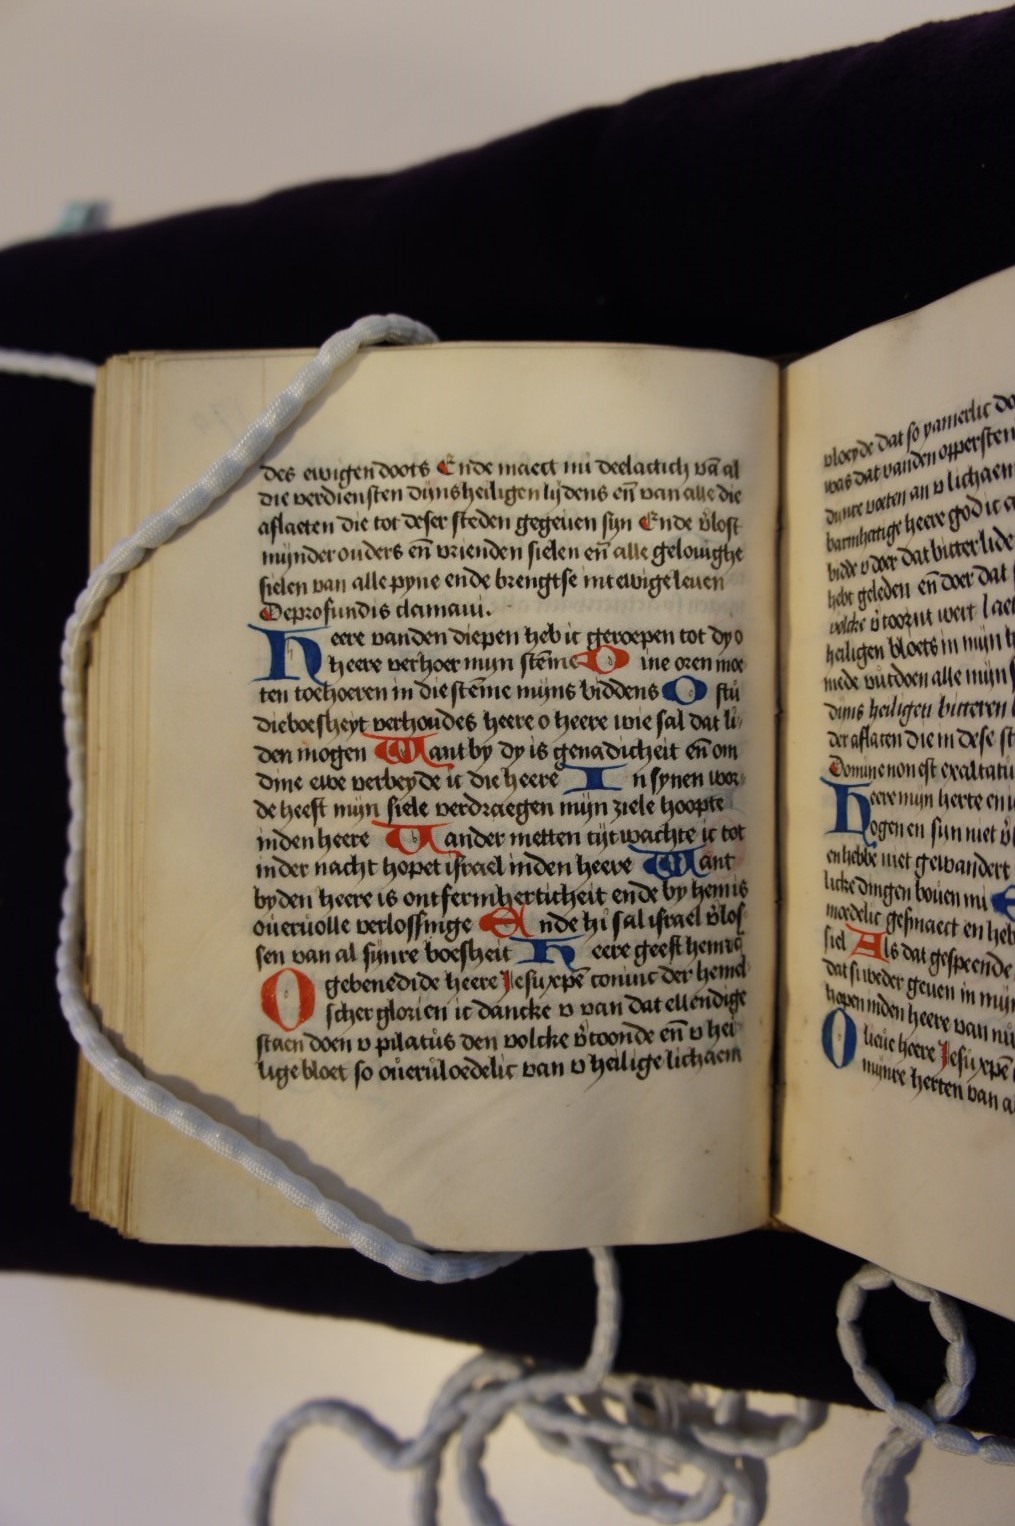 des ewigen doots Ende maect mi deelachtich vā al
die verdiensten dijns heiligen lijdens eñ van alle die
aflaeten die tot deser steden gegeuen sijn Ende v̄lost
mijnder ouders eñ vrienden sielen eñ alle gelouighe
sielen van alle pyne ende brengtse int ewige leuen
Deprofundis clamaui.
Heere vanden diepen heb ic geroepen tot dy o
heere verhoer mijn stēme Dine oren moe
ten toehoeren in die stēme mijns biddens O stu
die boesheyt verhoudes heere o heere wie sal dat li
den mogen Want by dy is genadicheit eñ om
dine ewe verbeyde ic die heere In synen woer
de heeft mijn siele verdraegen mijn ziele hoopte
inden heere Vander metten tijt wachte ic tot
inder nacht hopet israel inden heere Want
by den heere is ontfermherticheit ende by hem is
ouervolle verlossinge Ende hi sal israel v̄los
sen van al sijnre boesheit Heere geeft hem
O gebenedide heere Jesu xpē coninc der hemel
scher glorien ic dancke v van dat ellendige
staen doen v pilatus den volcke v̄toonde eñ v hei
lige bloet so oueruloedelic van v heilige lichaem
vloeyde dat so yamerlic
was dat vanden oppersten
dijnre voeten an v lichaem
barmhertige heere god ic
bidde v doer dat bitter lide
hebt geleden eñ doer dat
volcke v̄toornt wert laet
heiligen bloets in mijn
mede wtdoen alle mijn
dijns heiligen bitteren
der aflaten die in dese
Domine non est exaltatu
Heere mijn herte en
ogen en sijn niet
en hebbe niet gewandert
licke dingen bouen mi
moedelic gesmaect en heb
siel Als dat gespeende
dat si weder geuen in mijn
hopen inden heere van nu
O lieue heere Jesu xpē
mijnre herten van